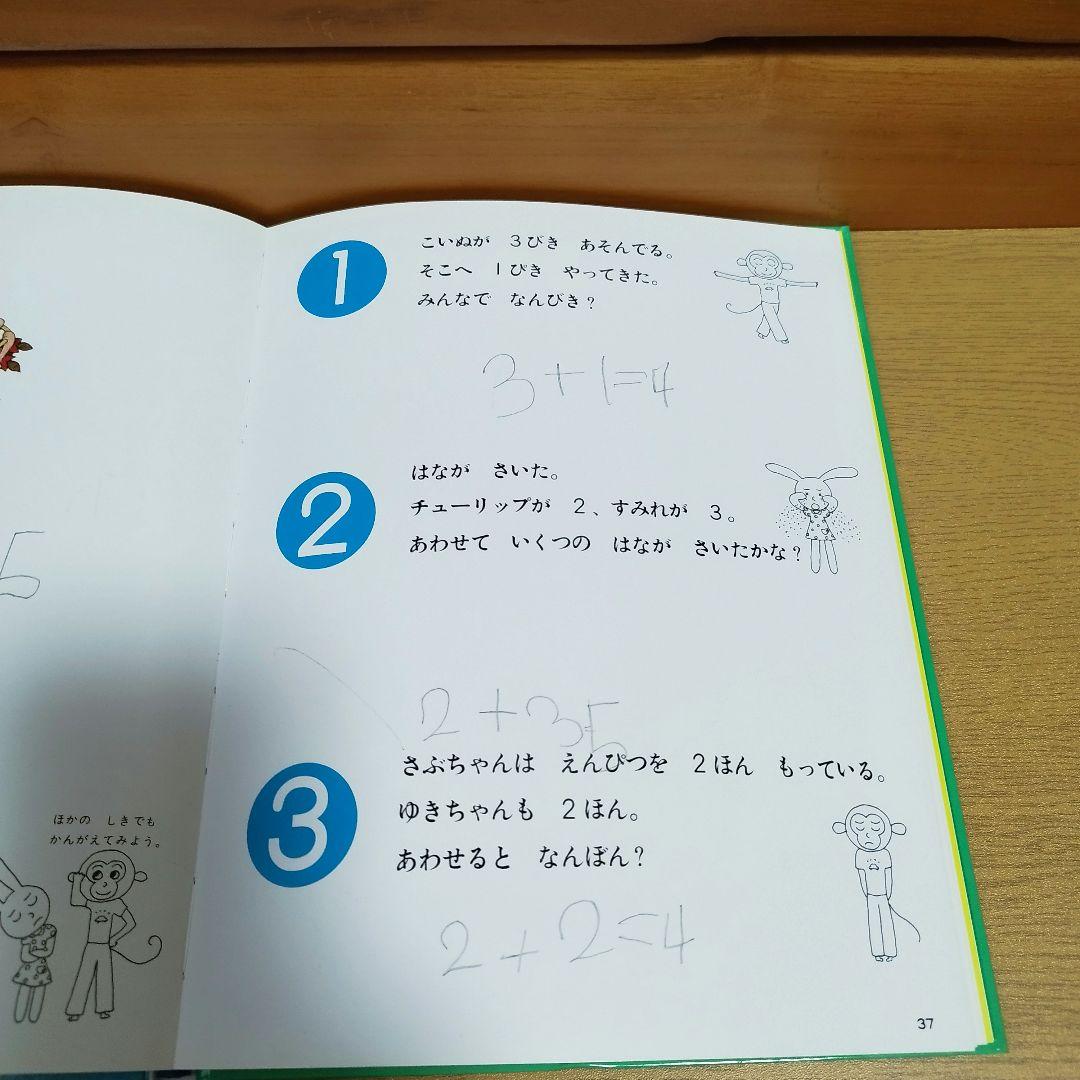 5
ほかの しきでも
かんがえてみよう。
1
こいぬが 3びき あそんでる。
そこへ 1ぴき やってきた。
みんなで なんびき?
3+1=4
2
はなが さいた。
チューリップが 2、すみれが 3。
あわせて いくつの はなが さいたかな?
2+3=5
3
さぶちゃんは えんぴつを 2ほん もっている。
ゆきちゃんも 2ほん。
あわせると なんぼん?
2+2=4
37